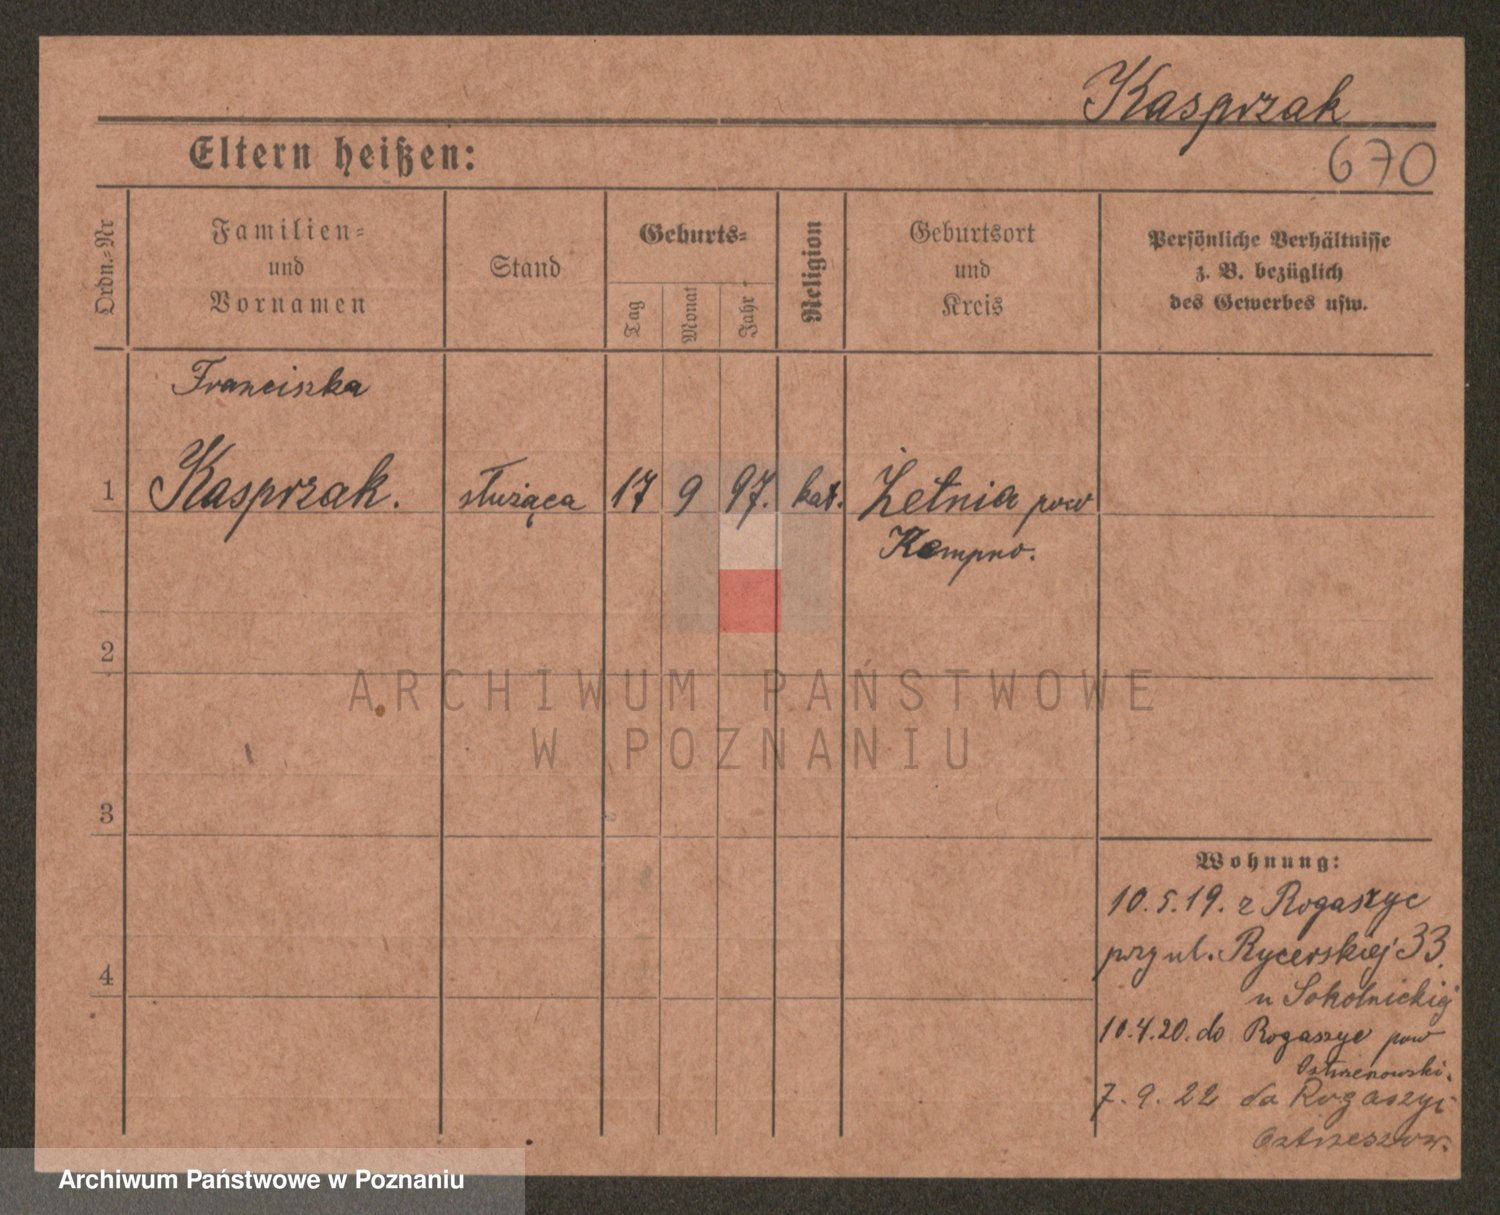 Kasprzak
Eltern heißen:
670
Ordn.-Nr
Familien-
und
Vornamen
Stand
Geburts-
Tag
Monat
Jahr
Religion
Geburtsort
und
Kreis
Persönliche Verhältnisse
z. B. bezüglich
des Gewerbes usw.
Franciszka
1 Kasprzak. służąca 17 9 97. kat. Żetnia pow
Kempno.
2
3
4
Wohnung:
10.5.19. z Rogaszyc
przy ul. Rycerskiej 33.
u Sokolnickiej
10.4.20. do Rogaszyc pow
7.9.22 do Rogaszyc
Ostrzeszow.
ARCHIWUM PAŃSTWOWE
W POZNANIU
Archiwum Państwowe w Poznaniu